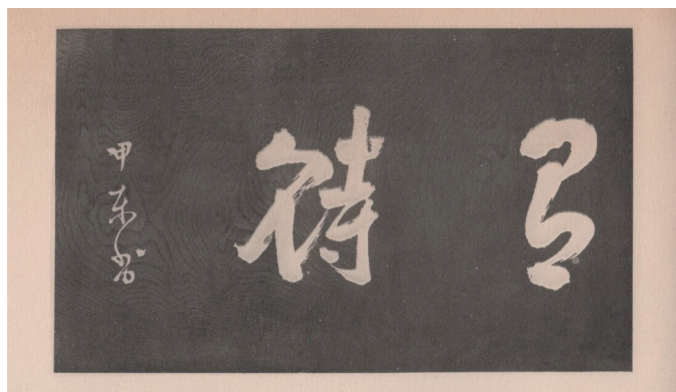 有待
甲東書